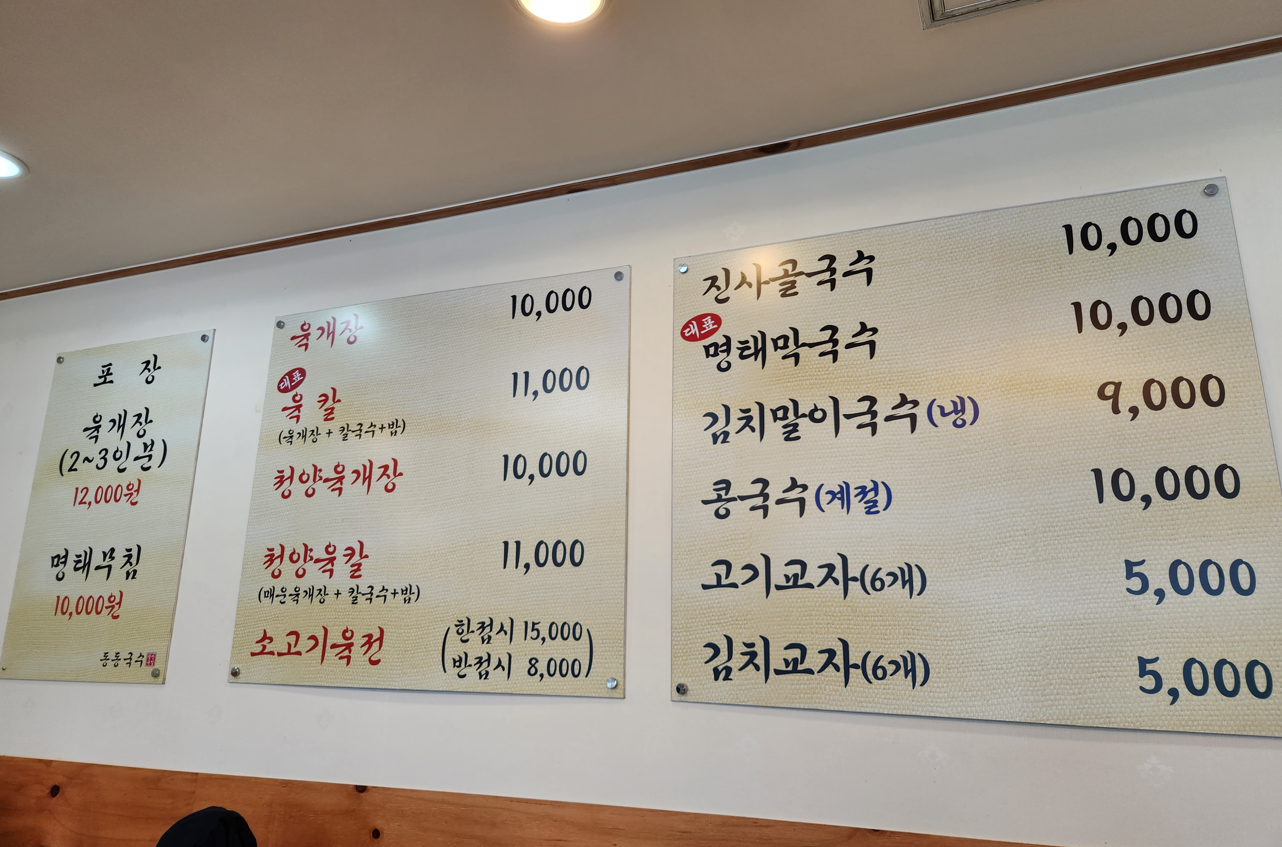 포 장
육개장
(2~3인분)
12,000원
명태무침
10,000원
동동국수
육개장 10,000
대표
육칼 11,000
(육개장 + 칼국수+밥)
청양육개장 10,000
청양육칼 11,000
(매운육개장 + 칼국수+밥)
소고기육전 (한접시 15,000
반접시 8,000)
진사골국수 10,000
대표
명태막국수 10,000
김치말이국수(냉) 9,000
콩국수(계절) 10,000
고기교자(6개) 5,000
김치교자(6개) 5,000